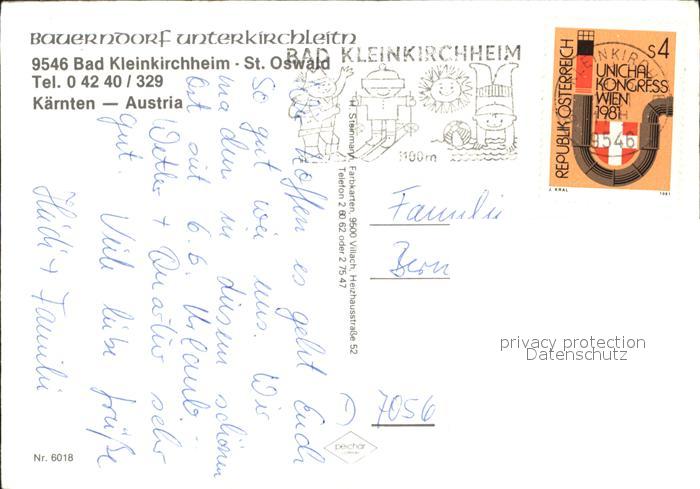 Bauerndorf Unterkirchleitn
9546 Bad Kleinkirchheim · St. Oswald
Tel. 0 42 40 / 329
Kärnten — Austria
BAD KLEINKIRCHHEIM
1100m
9546
S4
REPUBLIK ÖSTERREICH
UNICHAL
KONGRESS
WIEN
1981
J. KRAL
1981
Wir hoffen es geht Euch
so gut wie uns. Wir
machen in diesem schönen
Ort seit 6.6. Urlaub.
Wetter + Quartier sehr
gut. Viele liebe Grüße
Heidi + Familie
H. Steinmann, Farbkarten, 9500 Villach, Heizhausstraße 52
Telefon 2 60 62 oder 2 75 47
Familie
Bern
privacy protection
Datenschutz
7056
Nr. 6018